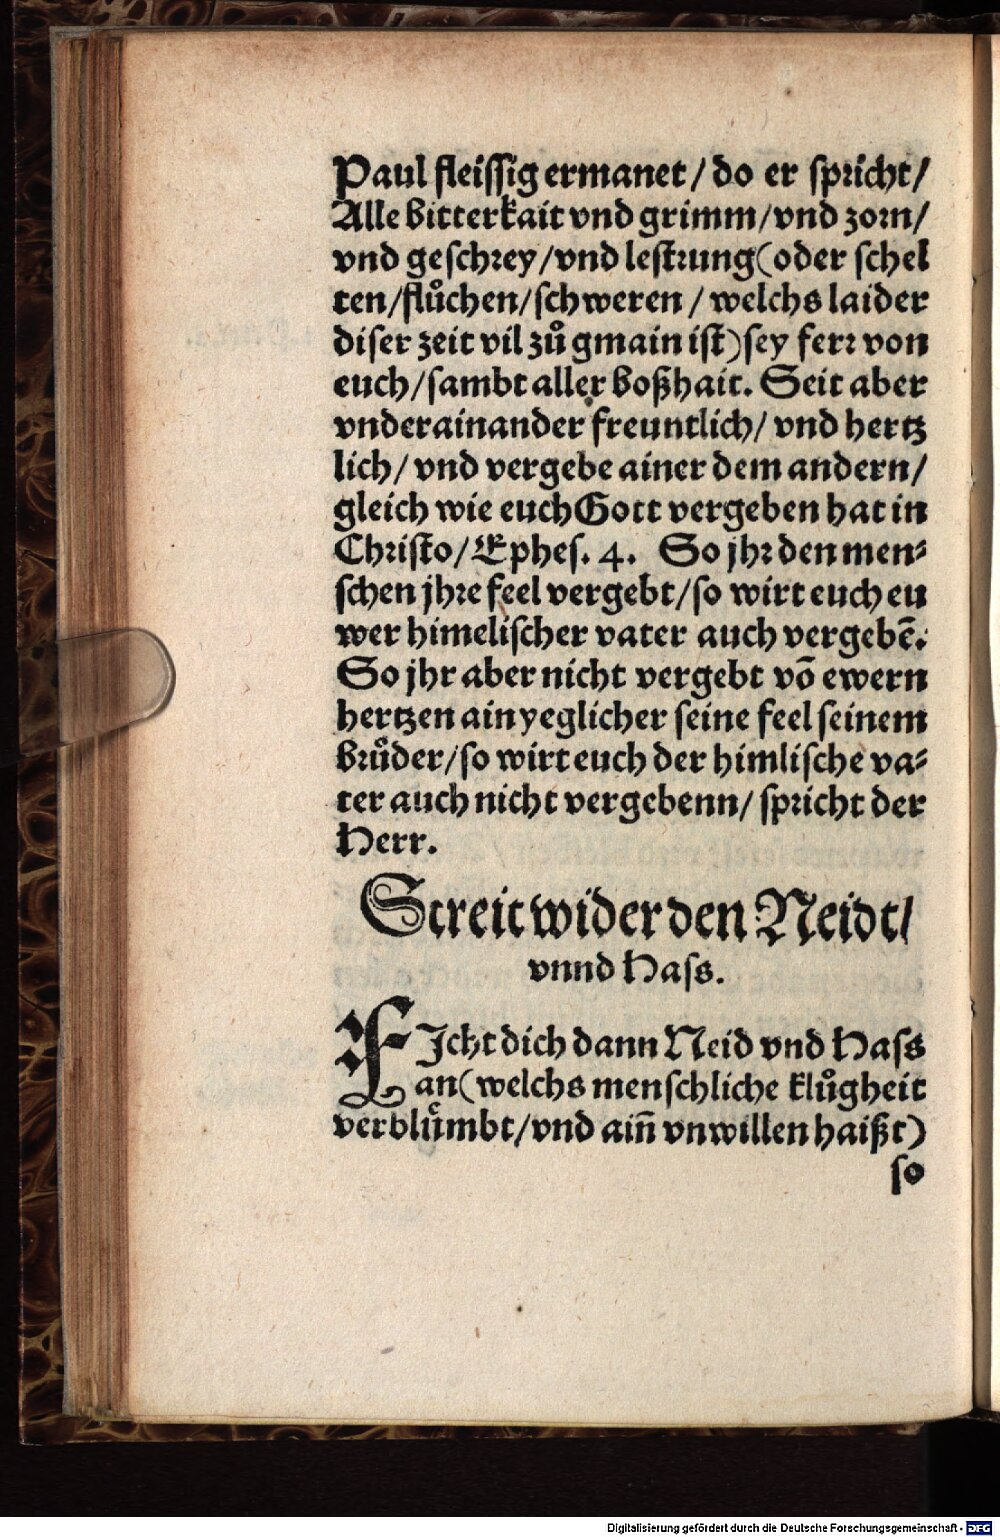 Paul fleissig ermanet / do er spricht /
Alle bitterkait vnd grimm / vnd zorn /
vnd geschrey / vnd lestrung (oder schel
ten / flůchen / schweren / welchs laider
diser zeit vil zů gmain ist) sey ferr von
euch / sambt aller boßhait. Seit aber
vnderainander freuntlich / vnd hertz
lich / vnd vergebe ainer dem andern /
gleich wie euch Gott vergeben hat in
Christo / Ephes. 4. So jhr den men-
schen jhre feel vergebt / so wirt euch eu
wer himelischer vater auch vergebē.
So jhr aber nicht vergebt vō ewern
hertzen ain yeglicher seine feel seinem
brůder / so wirt euch der himlische va-
ter auch nicht vergebenn / spricht der
Herr.
Streit wider den Neidt /
vnnd Hass.
FIcht dich dann Neid vnd Hass
an (welchs menschliche klůgheit
verblůmbt / vnd ain̄ vnwillen haißt)
so
Digitalisierung gefördert durch die Deutsche Forschungsgemeinschaft - DFG